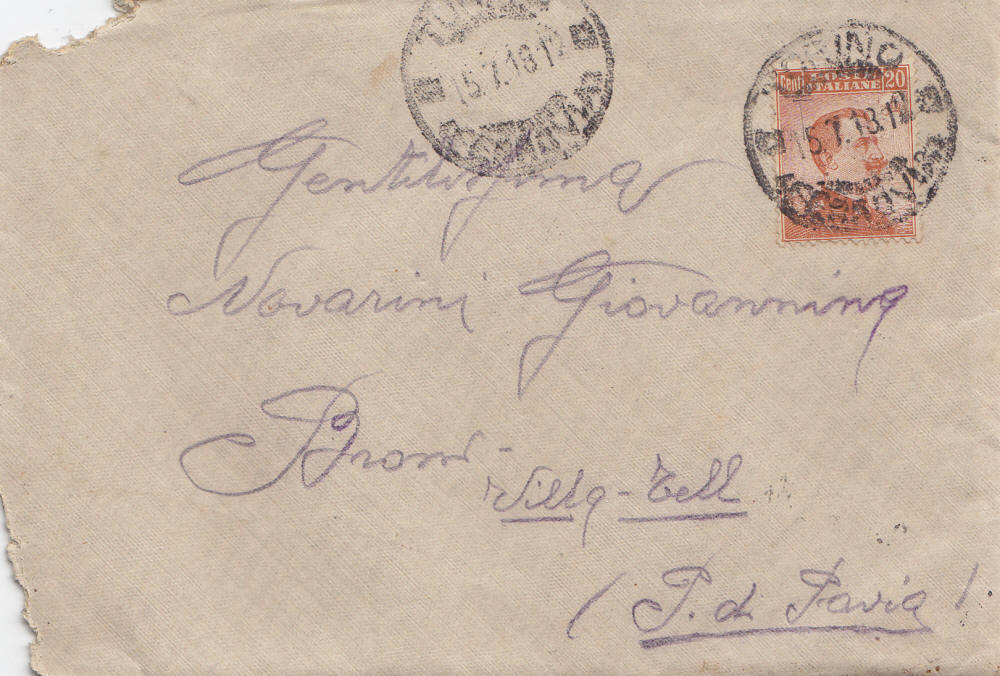 TORINO
15.7.18.19
FERROVIA
TORINO
15.7.18.19
FERROVIA
Cent. POSTE 20
ITALIANE
Gentilissima
Novarini Giovannina
Broni -
Villa - Tell
( P. di Pavia )